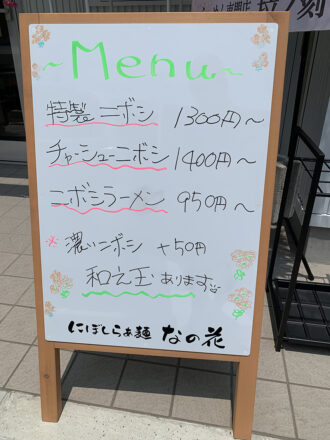 ~Menu~
特製ニボシ 1300円~
チャーシューニボシ 1400円~
ニボシラーメン 950円~
※濃いニボシ +50円
和え玉あります
にぼしらぁ麺 なの花